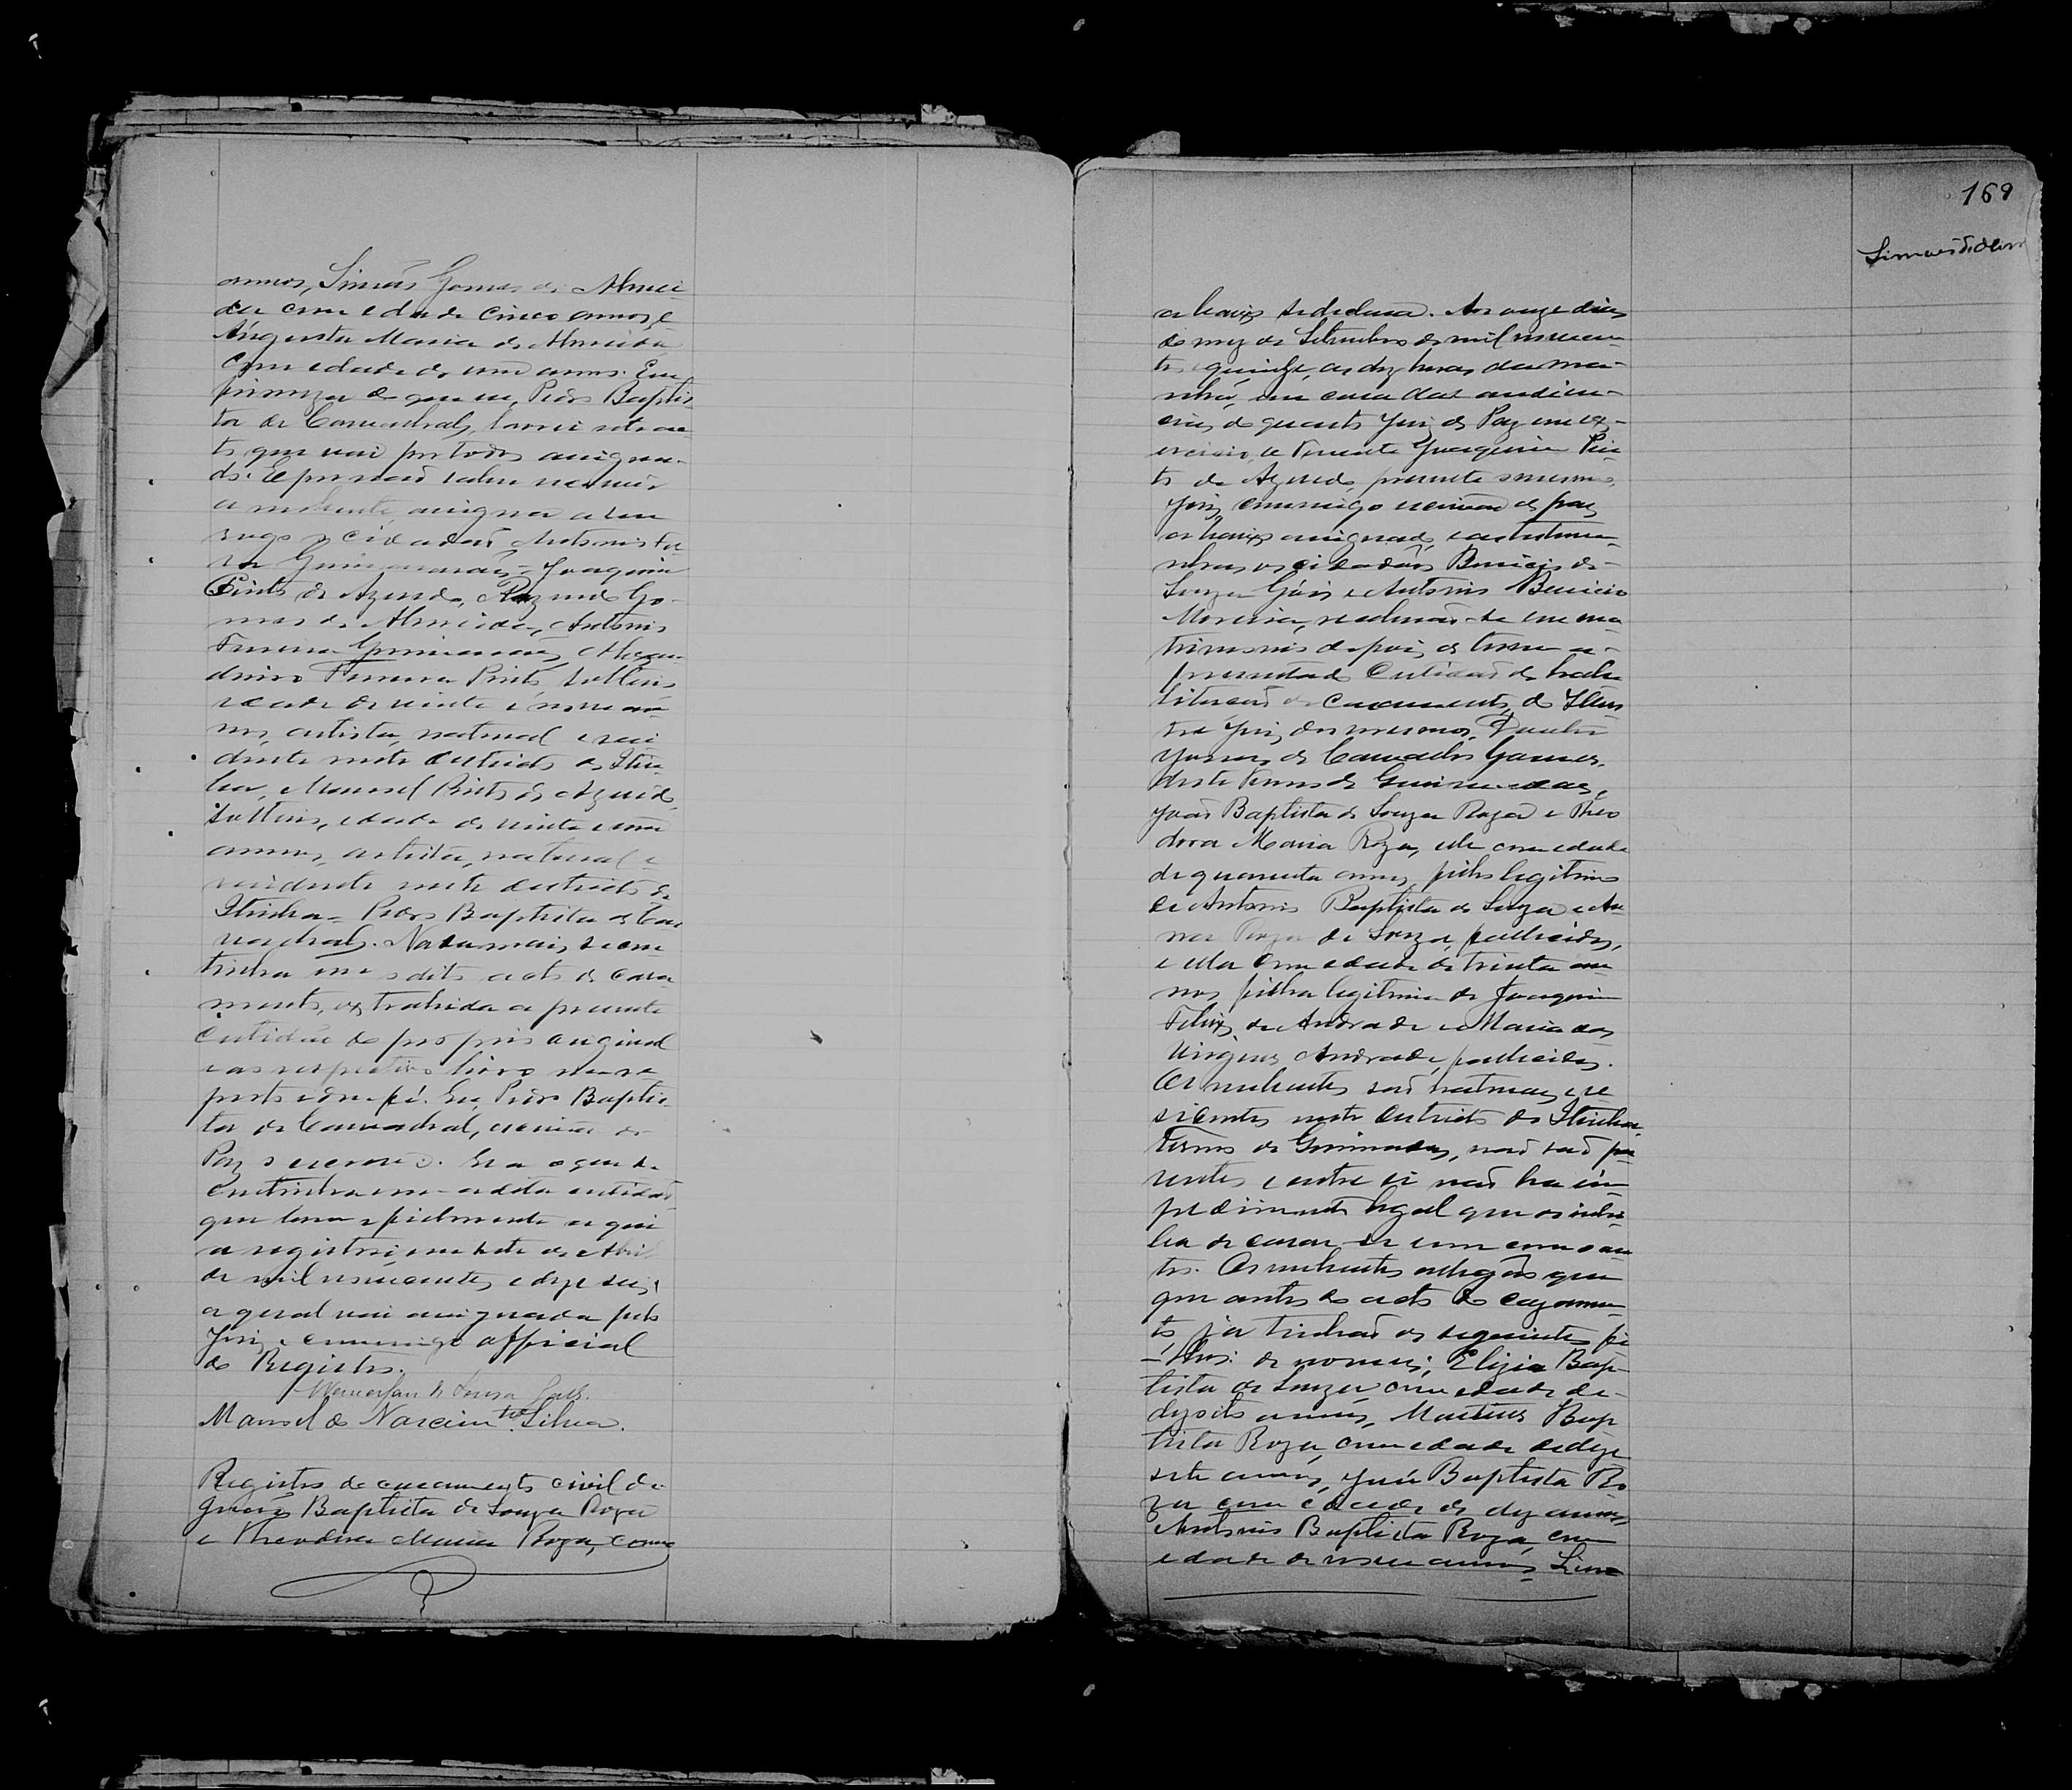 annos, Simão Gomes de Almei-
da com edade de cinco annos e
Augusta Maria de Almeida
com edade de um anno. Em
firmeza do que eu, Pedro Baptis-
ta de Carvalhal, lavrei este ac-
to que vai por todos assigna-
do. E por não saber
a nubente, assigna a seu
rogo o cidadão Antonio Fer
ra Guimarães = Joaquim
Pinto de Azevedo, Go-
mes de Almeida, Antonio
Ferreira Guimarães,
Ferreira Pinto, solteiro,
edade de vinte e nove an-
nos, artista, natural e resi
dente neste districto de Itiu-
ba, Manoel Pinto de Azevedo,
solteiro, edade de vinte e um
annos, artista, natural e
residente neste districto de
Itiuba = Pedro Baptista de Car
valhal. Nada mais se con
tinha em o dito acto de casa
mento, extrahida a presente
certidão do proprio original
e ao respectivo livro me re
porto e dou fé. Eu, Pedro Baptis-
ta de Carvalhal, escrivão de
Paz o escrevi. Era o que se
continha em a dita certidão
que bem e fielmente aqui
a registrei, em sete de Abril
de mil novecentos e dezeseis,
a qual vai assignada pelo
Juiz e commigo official
do Registro.
de Souza
Manoel do Nascimto. Silva.
Registro de casamento civil de
João Baptista de Souza Roza
e Theodora Maria Roza, como
169
abaixo se declara. Aos onze dias
do mez de Setembro de mil novecen-
tos e quinze, as dez horas da ma-
nhã, em casa das audien-
cias do quarto Juiz de Paz em ex-
ercicio, o Tenente Joaquim Pin
to de Azevedo, presente o mesmo
Juiz, commigo escrivão de paz
abaixo assignado, e as testemu-
nhas os cidadãos Benicio de
Souza Góis e Antonio Benicio
Moreira, receberão-se em ma
trimonio depois de terem a-
presentado certidão de habi
litação de casamento, do Illus
tre Juiz dos mesmos,
Gomes de Carvalho
deste Termo de
João Baptista de Souza Roza e Theo
dora Maria Roza, elle com edade
de quarenta annos, filho legitimo
de Antonio Baptista de Souza e An
na Roza de Souza, fallecidos,
e ella com edade de trinta an
nos filha legitima de Joaquim
Felix de Andrade e Maria das
Virgens Andrade, fallecidos.
Os nubentes são naturaes e re
sidentes neste districto de Itiuba
Termo de, não são pa
rentes e entre si não ha im
pedimento legal que os inhi
ba de casar-se um com o ou
tro. Os nubentes allegão que
que antes do acto do cazamen
to já tinhão os seguintes fi
lhos: de nomes: Bap
tista de Souza, com edade de
dezoito annos, Bap
tista Roza, com edade de deze
sete annos, José Baptista Ro
za com edade de dez annos,
Antonio Baptista Roza, com
edade de nove annos,